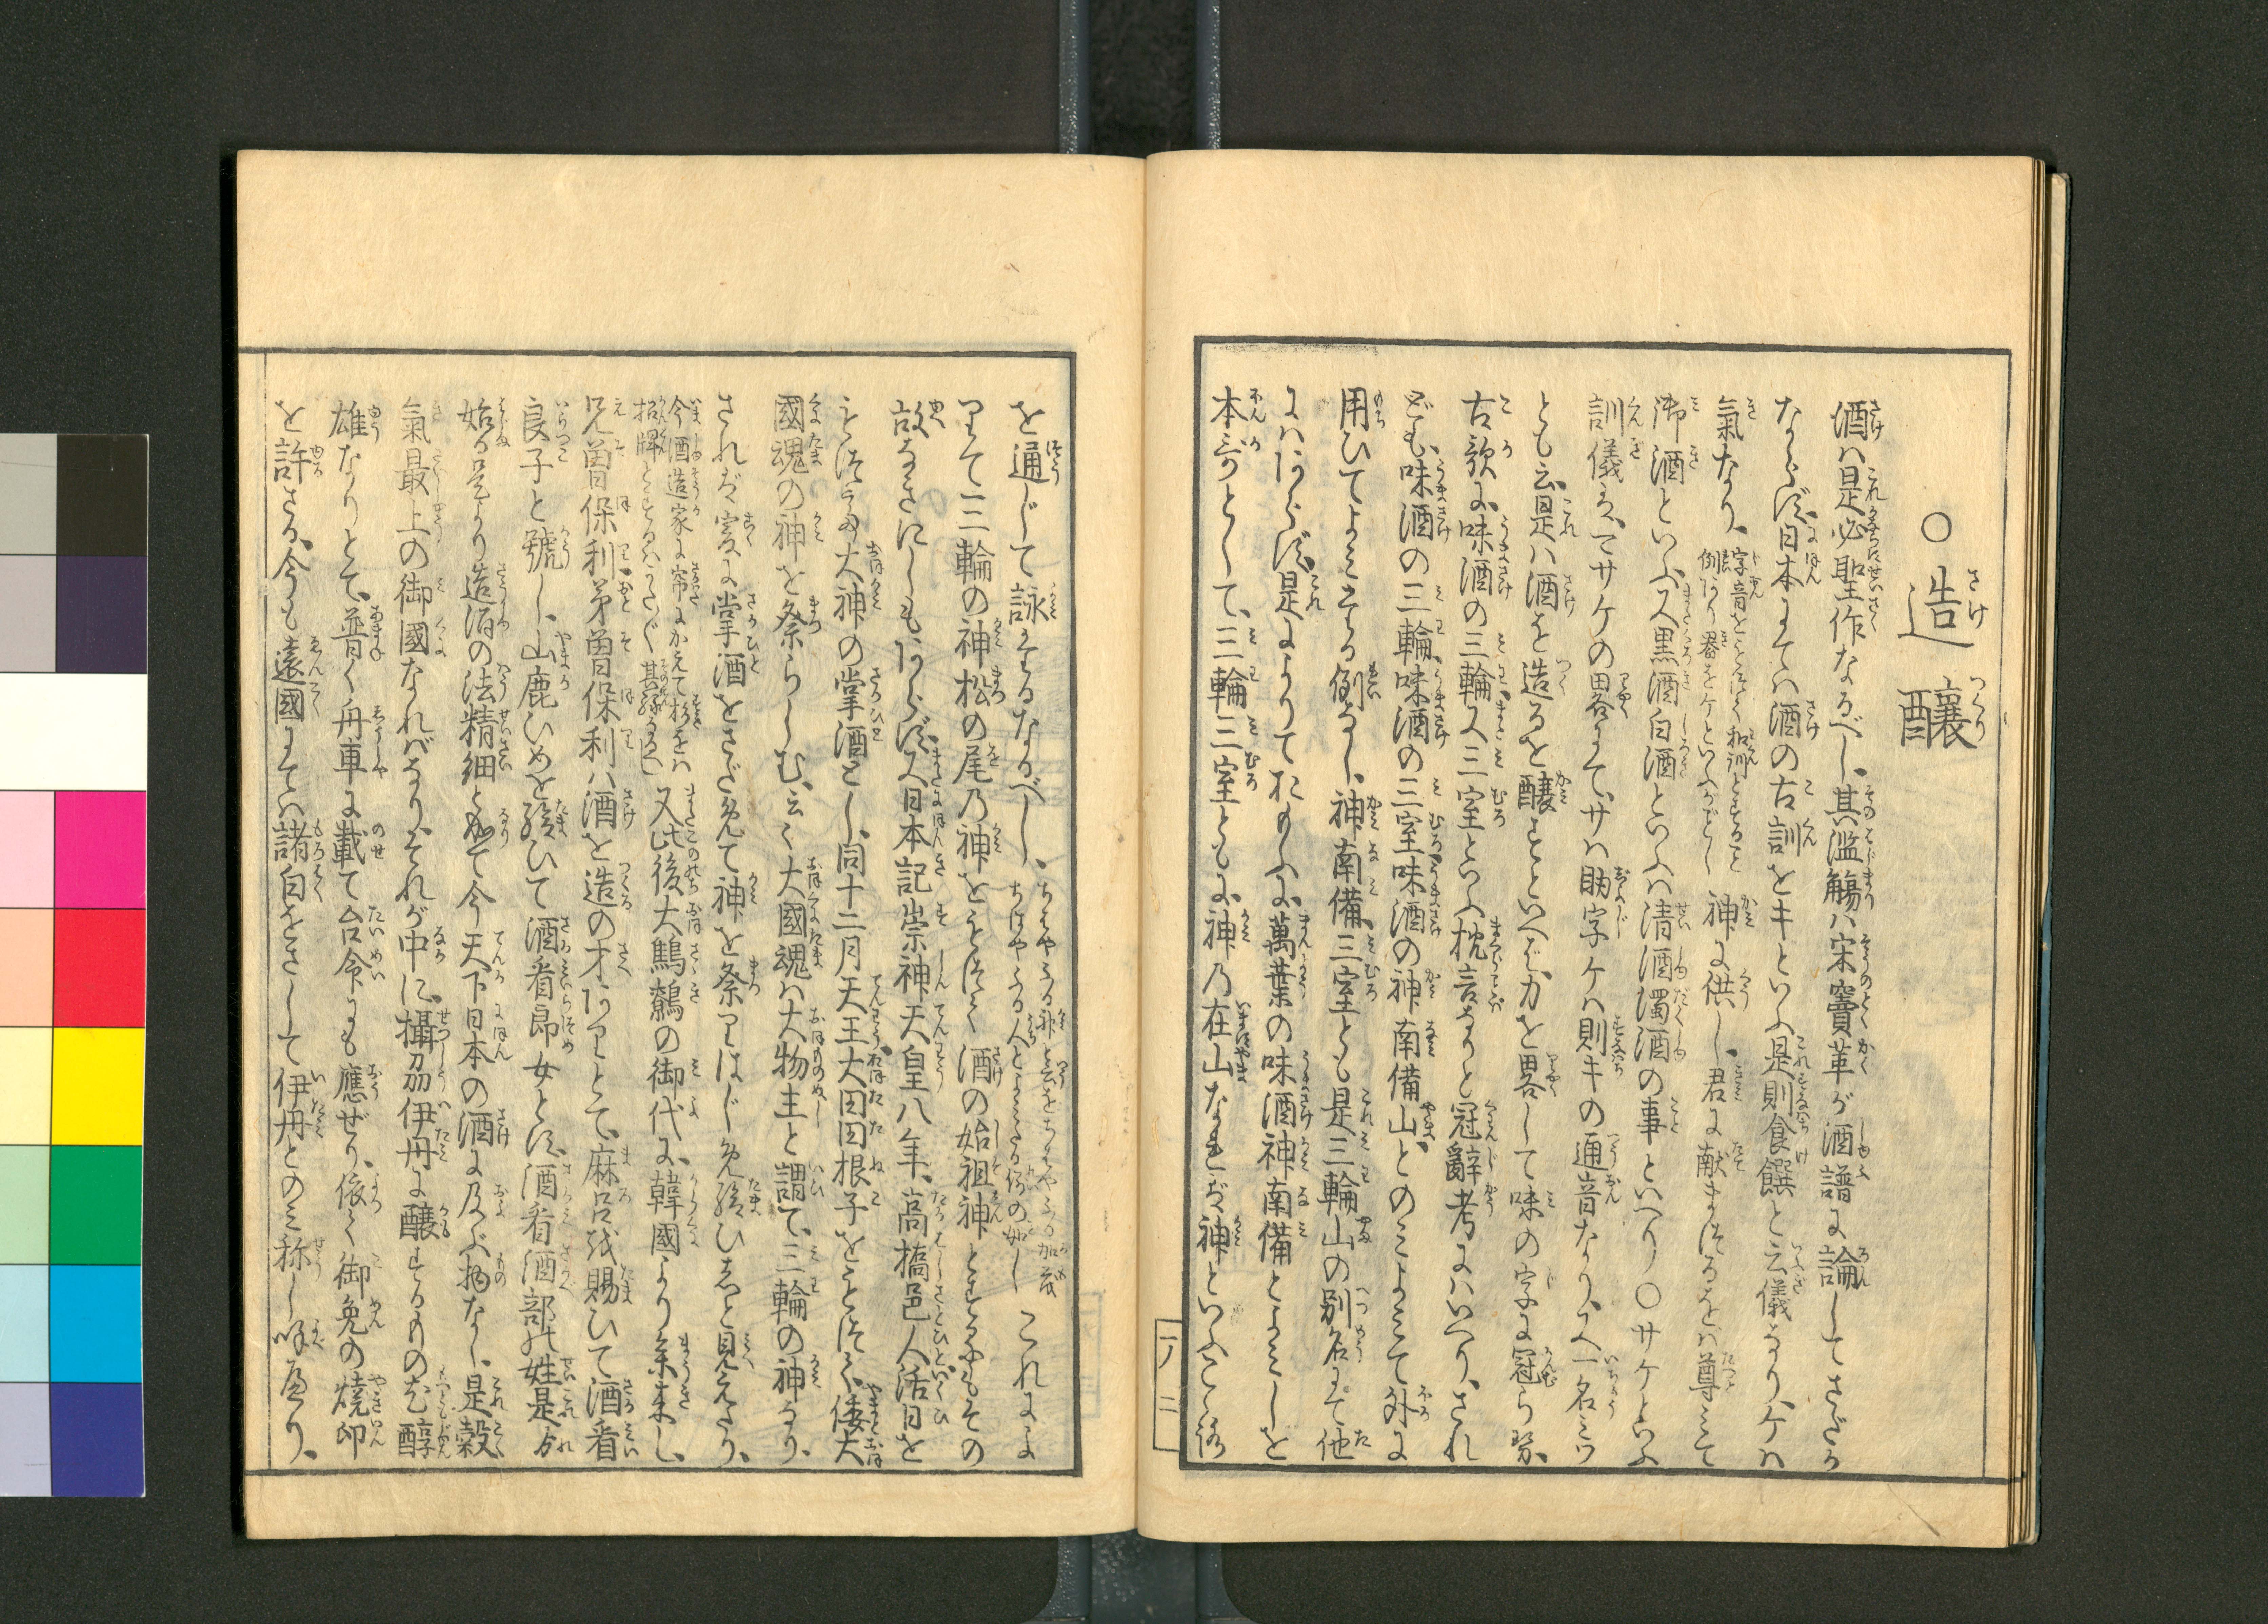 ○造醸
酒は是必聖作なるべし、其濫觴は宋竇革が酒譜に論してさだか
ならず、日本にては酒の古訓をキといふ是則食饌と云儀なり、ケは
氣なり、字音をもつて和訓とすること例あり器をケといふがごとし 神に供し、君に献まつるをは尊みて
御酒といふ、又黒酒白酒といふは清酒濁酒の事といへり○サケといふ
訓儀は、マサケの畧にて、サは助字ケは則キの通音なり、又一名ミワ
とも云、是は酒を造るを醸すといへば、カを畧して味の字に冠らせ、
古歌に味酒の三輪、又三室といふ枕言なりと冠辞考にはいへり、され
ども、味酒の三輪、味酒の三室、味酒の神南備山、とのみよみて外に
用ひてよみたる例なし、神南備、三室とも是三輪山の別名にて他
にはあらず、是によりておもふに、萬葉の味酒神南備とよみしを
本哥として、三輪三室ともに神の在山なれば神といふこゝろ
一ノ二
を通じて詠たるなるべし、ちはやふる神と云をちはやふる加茂ちはやふる人とよみたる例の如し これによ
りて三輪の神松の尾の神をもつて酒の始祖神とするもその
故なきにしもあらず、又日本記崇神天皇八年、高橋邑人活日を
もつて大神の掌酒とし、同十二月天王大田田根子をもつて倭大
國魂の神を祭らしむ、云云大國魂は大物主と謂て、三輪の神なり、
されば爰に掌酒をさだめて神を祭りはじめ給ひしと見えたり、
今酒造家に帚にかえて杉をは招牌とするはかたがた其縁なるべし 又此後大鷦鷯の御代に、韓國より参来し、
兄曽保利、弟曽保利は酒を造の才ありとて、麻呂を賜ひて酒看
良子と號し、山鹿ひめを給ひて酒看郎女とす、酒看酒部の姓是より
始る是より造酒の法精細となりて今天下日本の酒に及ぶ物なし、是穀
氣最上の御國なればなり、それが中に、攝刕伊丹に醸するもの尤醇
雄なりとて、普く舟車に載て台命にも應ぜり、依て御免の焼印
を許さる、今も遠國にては諸白をさして伊丹とのみ称し呼へり、